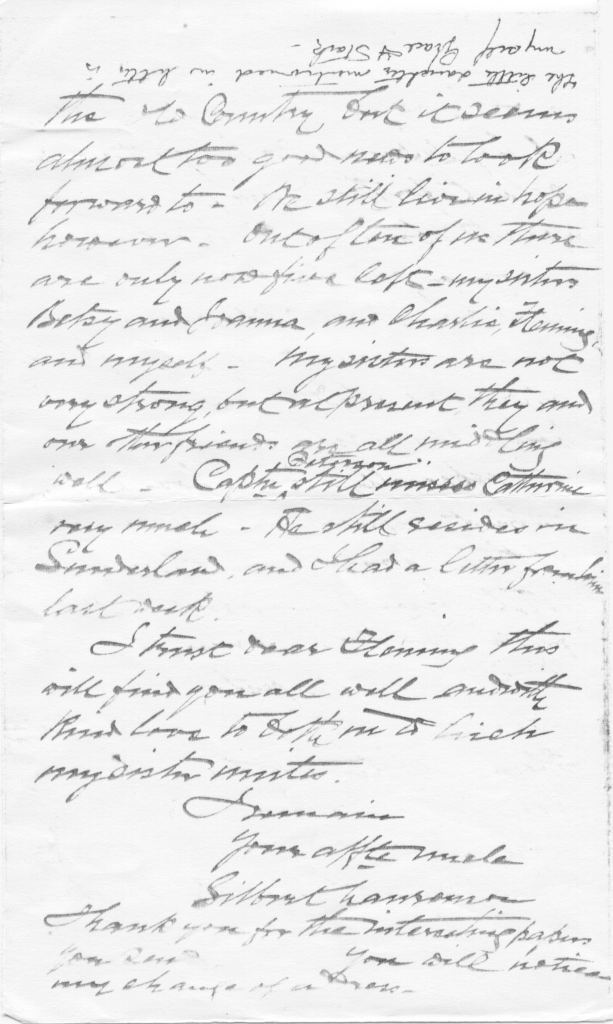 the little daughter mentioned in letter is
myself Grace H Stark -
the old Country, but it seems
almost too good news to look
forward to - We still live in hope
however - Out of ten of us there
are only now five left - my sisters
Betsy and Joanna, and Charlie, Fleming,
and myself - My sisters are not
very strong, but at present they and
our other friends are all middling
well - Captn Peterson still misses Catherine
very much - He still resides in
Sunderland, and I had a letter from him
last week.
I trust dear Fleming this
will find you all well and with
kind love to both in which
my sister unites.
I remain
Your affte uncle
Gilbert
Thank you for the interesting papers
you send You will notice
my change of address -